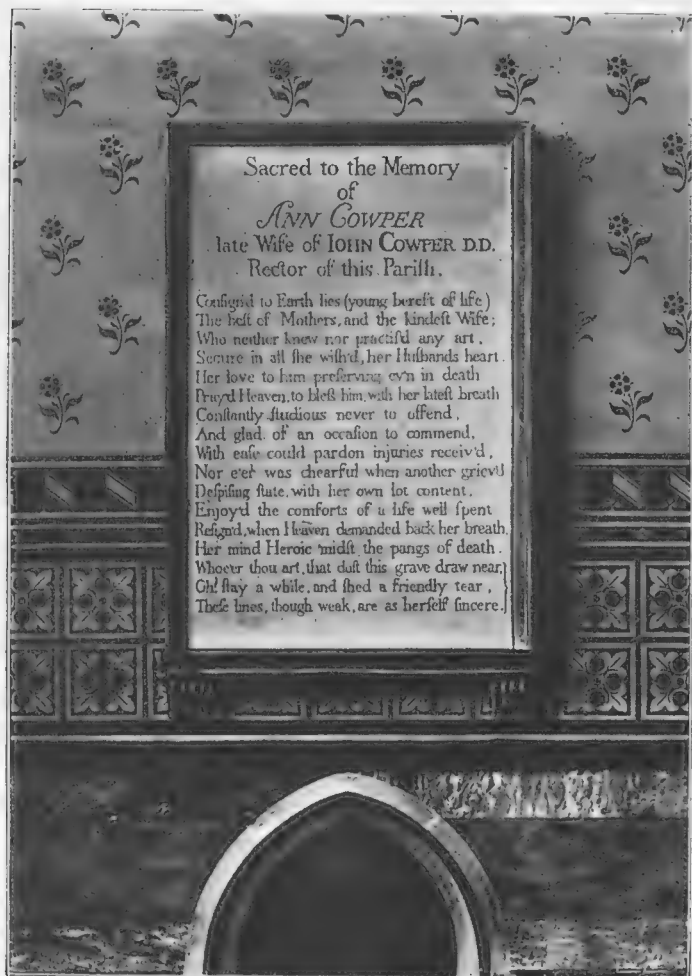 Sacred to the Memory
of
ANN COWPER
late Wife of IOHN COWPER D.D.
Rector of this Pariſh.
Conſign'd to Earth lies (young bereft of life)
The beſt of Mothers, and the kindeſt Wife;
Who neither knew nor practiſ'd any art,
Secure in all ſhe wiſh'd, her Huſbands heart.
Her love to him preſerving ev'n in death
Pray'd Heaven, to bleſs him, with her lateſt breath
Conſtantly ſtudious never to offend,
And glad of an occaſion to commend,
With eaſe could pardon injuries receiv'd,
Nor e'er was chearful when another griev'd
Deſpiſing ſtate, with her own lot content,
Enjoy'd the comforts of a life well ſpent
Reſign'd, when Heaven demanded back her breath,
Her mind Heroic 'midſt the pangs of death.
Whoe'er thou art, that doſt this grave draw near,
Oh! ſtay a while, and ſhed a friendly tear,
Theſe lines, though weak, are as herſelf ſincere.